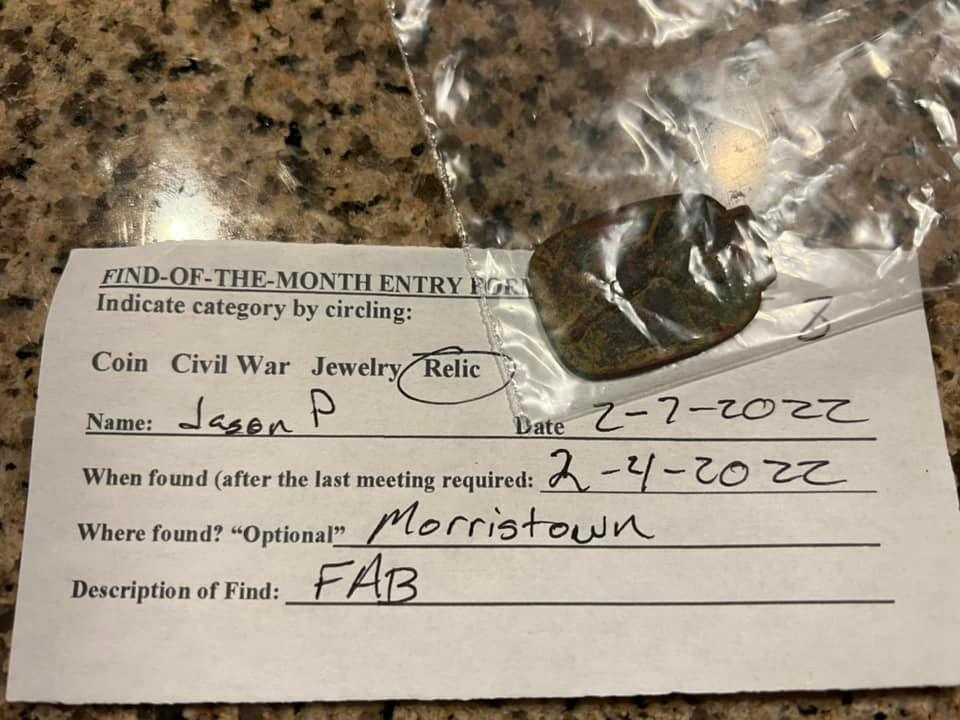 FIND-OF-THE-MONTH ENTRY FORM
Indicate category by circling:
Coin Civil War Jewelry Relic
Name: Jason P Date 2-7-2022
When found (after the last meeting required: 2-4-2022
Where found? “Optional” Morristown
Description of Find: FAB